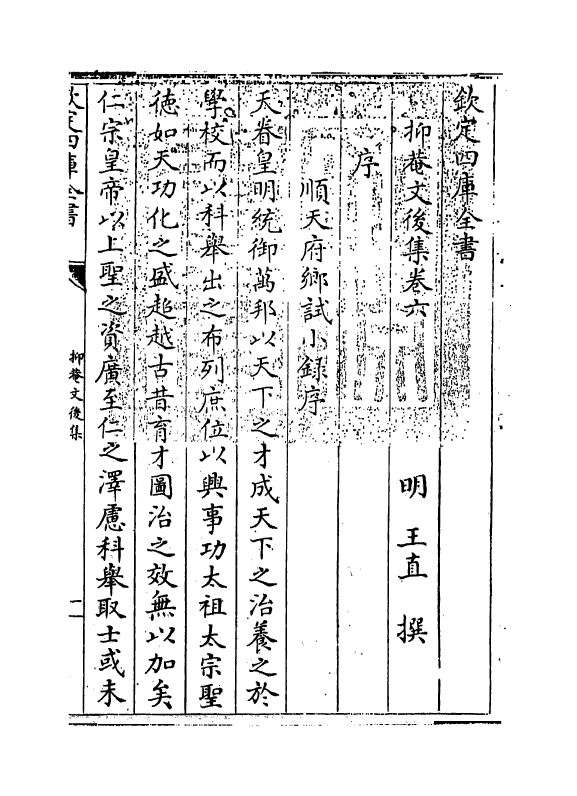 欽定四庫全書
抑菴文後集卷六
明 王直 撰
序
順天府鄉試小録序
天眷皇明統御萬邦以天下之才成天下之治養之於
學校而以科舉出之布列庶位以興事功太祖太宗聖
徳如天功化之盛超越古昔育才圖治之效無以加矣
仁宗皇帝以上聖之資廣至仁之澤慮科舉取士或未
欽定四庫全書
抑菴文後集
一